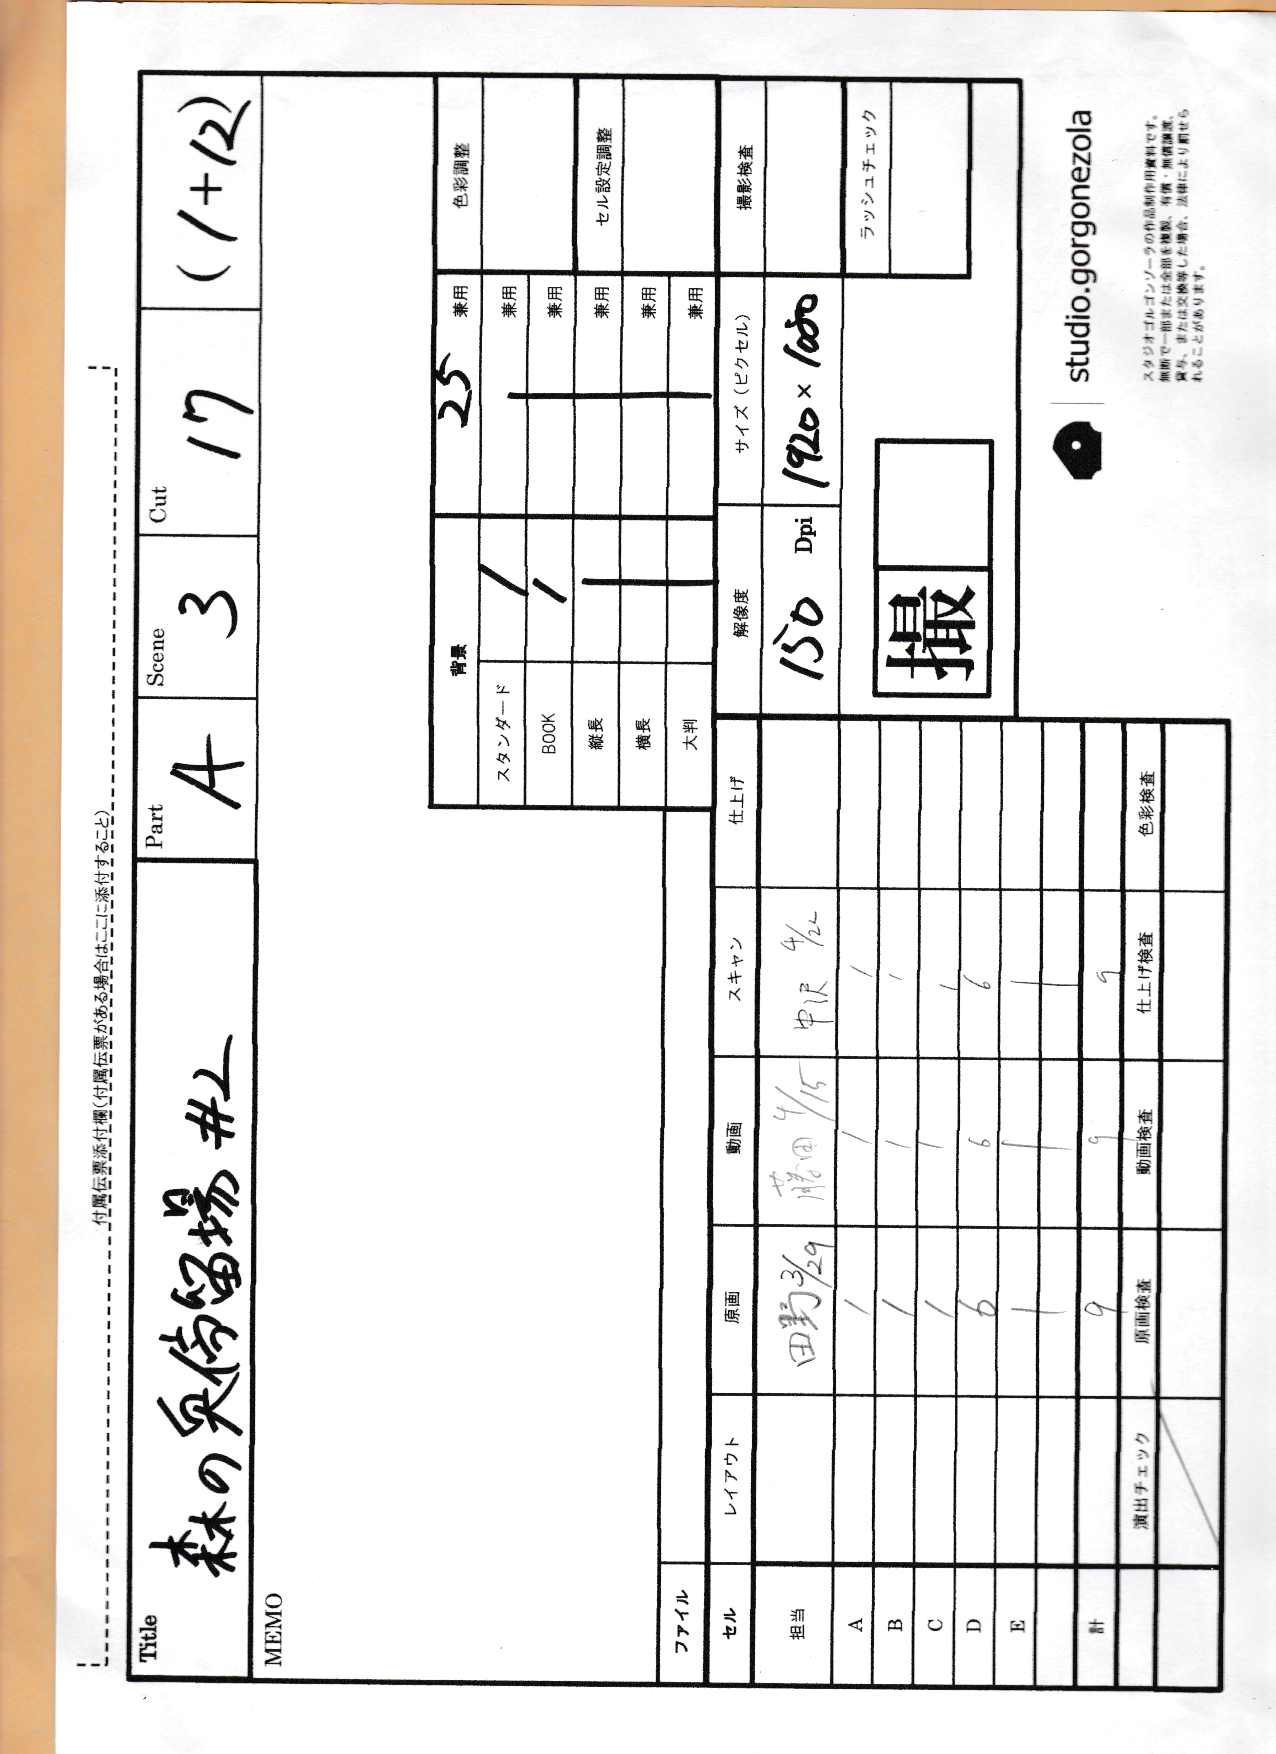 付属伝票添付欄(付属伝票がある場合はここに添付すること)
Title 森の兵傭留場 #2
Part A
Scene 3
Cut 17
(1+12)
MEMO
背景 25 兼用
スタンダード 1 兼用
BOOK 1 兼用
縦長 兼用
横長 兼用
大判 兼用
色彩調整
セル設定調整
解像度 サイズ(ピクセル) 撮影検査
150 Dpi 1920×1080
ラッシュチェック
撮
ファイル
セル レイアウト 原画 動画 スキャン 仕上げ
担当 3/29 藤田 4/15 中沢 4/22
A 1 1 1
B 1 1 1
C 1 1 1
D 6 6 6
E
計 9 9 9
演出チェック 原画検査 動画検査 仕上げ検査 色彩検査
studio.gorgonezola
スタジオゴルゴンゾーラの作品制作用資料です。
無断で一部または全部を複製、有償・無償譲渡、
貸与、または交換等した場合、法律により罰せら
れることがあります。